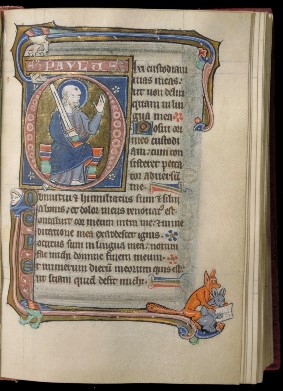 PAVLV
ixi custodiam
uias meas:
ut non delin
quam in lin
gua mea
Posui ori
meo custodi
am: cum con
sisteret pecca
tor aduersu
me
Obmutui et humiliatus sum et silui
a bonis: et dolor meus renouatus est
oncaluit cor meum intra me: et in me
ditatione mea exardescet ignis
ocutus sum in lingua mea: notum
fac michi domine finem meum
t numerum dierum meorum quis est
ut sciam quid desit michi